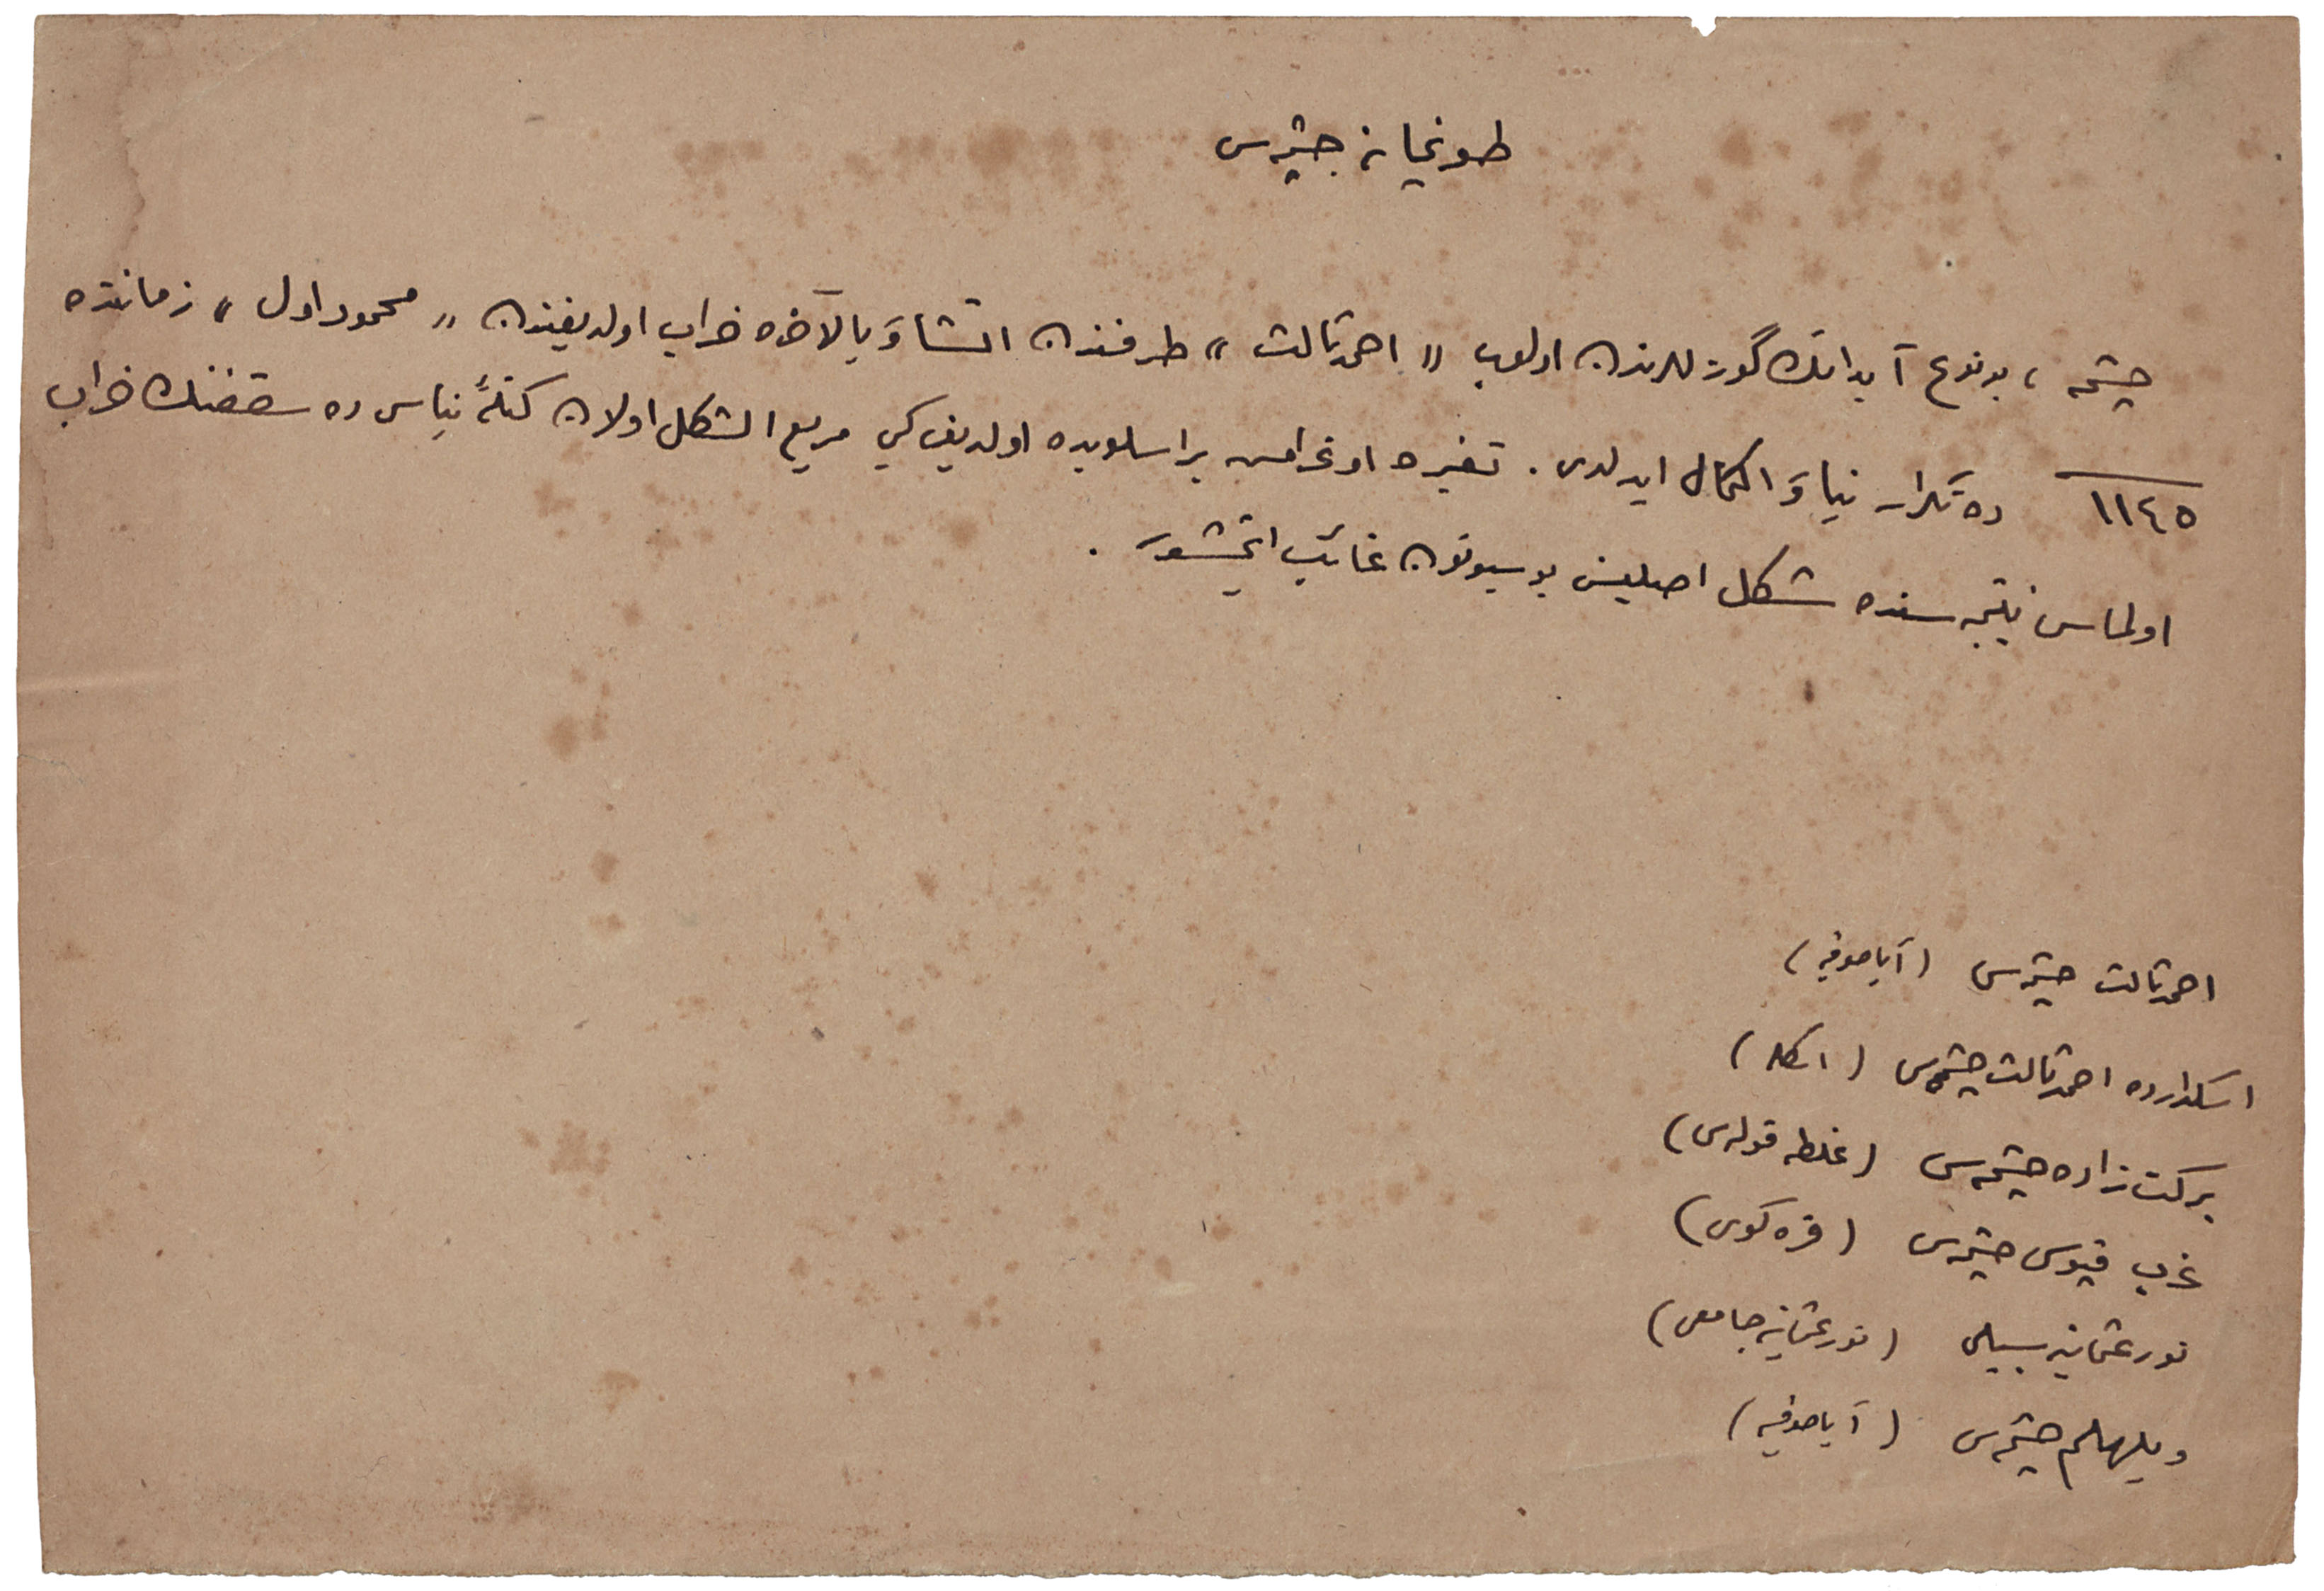 طوپخانه چشمه‌سی
چشمه ، بو نوع آبداتك گوزللرندن اولوب « احمد ثالث » طرفندن انشا و بالآخره خراب اولدیغندن « محمود اول » زماننده
١١٤٥ ده تكرار بنا و اكمال ایدلدی . تغیره اوغرامش بر اسلوبده اولدیغی كبی مربع الشكل اولان كتلهٔ بناسی ده سقفنك خراب
اولماسی نتیجه سنده شكل اصلیسنی بوسبوتون غائب ایتمشدر .
احمد ثالث چشمه‌سی (آیاصوفیه)
اسكدارده احمد ثالث چشمه‌سی (اسكله)
بركت زاده چشمه‌سی (غلطه قوله‌سی)
عزب قپوسی چشمه‌سی (قره كوی)
نور عثمانیه سبیلی (نور عثمانیه جامعی)
ویلهلم چشمه‌سی (آیاصوفیه)